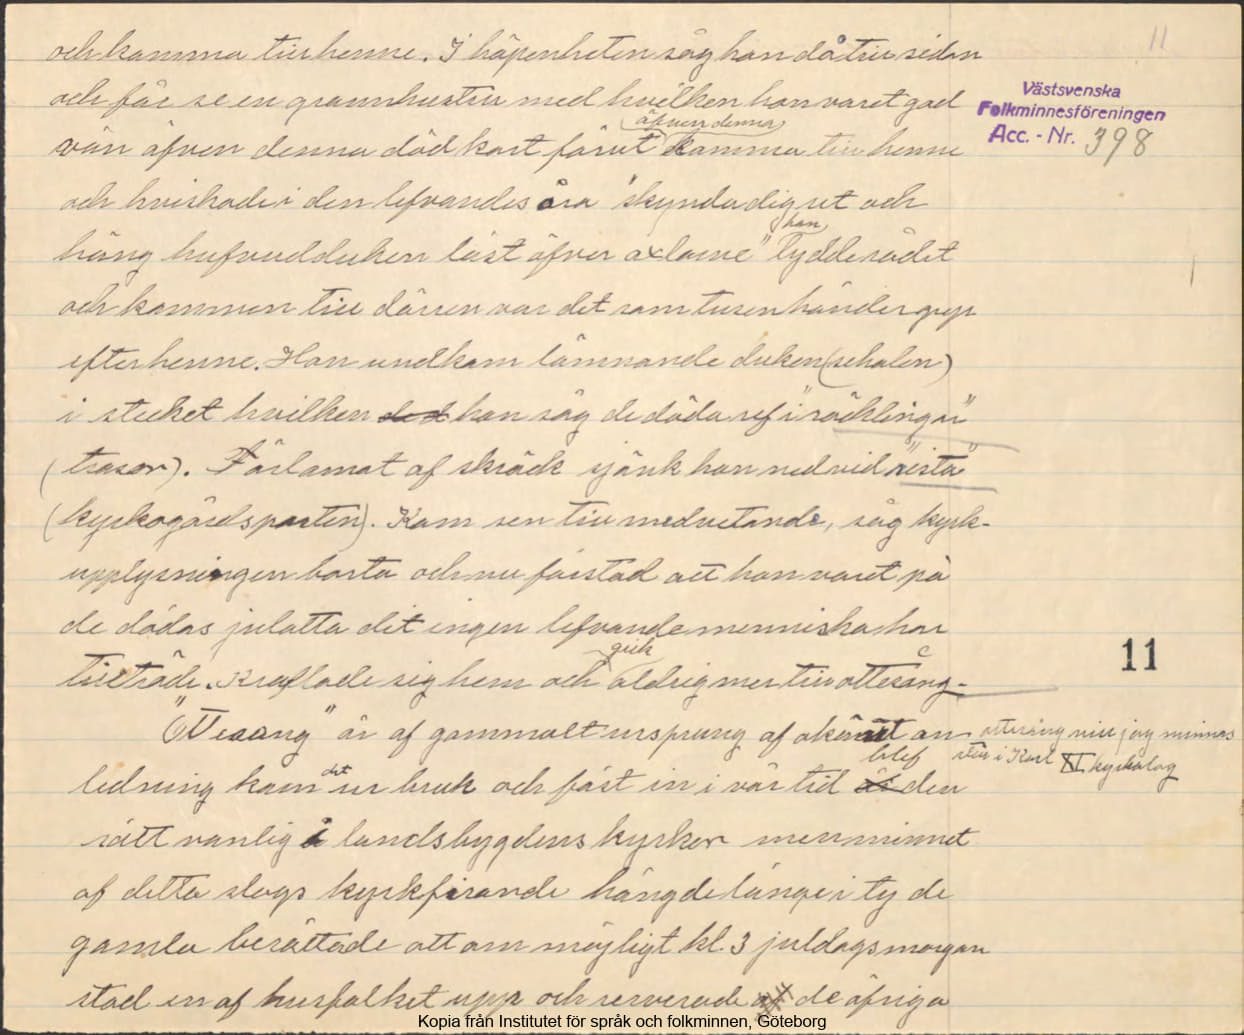 11
och komma till henne. I häpenheten såg hon då till sidan
och får se en grannhustru med hvilken hon varet god
vän äfven denna död kort förut (äfven denna) komma till henne
och hviskade i den lefvandes öra "skynda dig ut och
häng hufvudduken löst öfver axlarne" hon lydde rådet
och kommen till dörren var det som tusen händer grep
efter henne. Hon undkom lämnande duken (schalen)
i sticket hvilken hon såg de döda ref i "räcklingar"
(trasor). Förlamat af skräck sjönk hon ned vid "rista"
(kyrkogårdsporten). Kom sen till medvetande, såg kyrk-
upplysningen borta och nu förstod att hon varet på
de dödas julotta dit ingen lefvande menniska har
tillträde. Kraflade sig hem och gick aldrig mer till ottesång.
"Ottesång" är af gammalt ursprung af okänt an-
ledning kom det ur bruk och fast in i vår tid blef den
rätt vanlig i landsbygdens kyrkor men minnet
af detta slags kyrkfirande hängde länge i ty de
gamla berättade att om möjligt kl. 3 juldagsmorgon
stod en af husfolket upp och serverade de öfriga
ottesång vill jag minnas
i Karl XI kyrkolag
Västsvenska
Folkminnesföreningen
Acc. - Nr. 398
11
Kopia från Institutet för språk och folkminnen, Göteborg